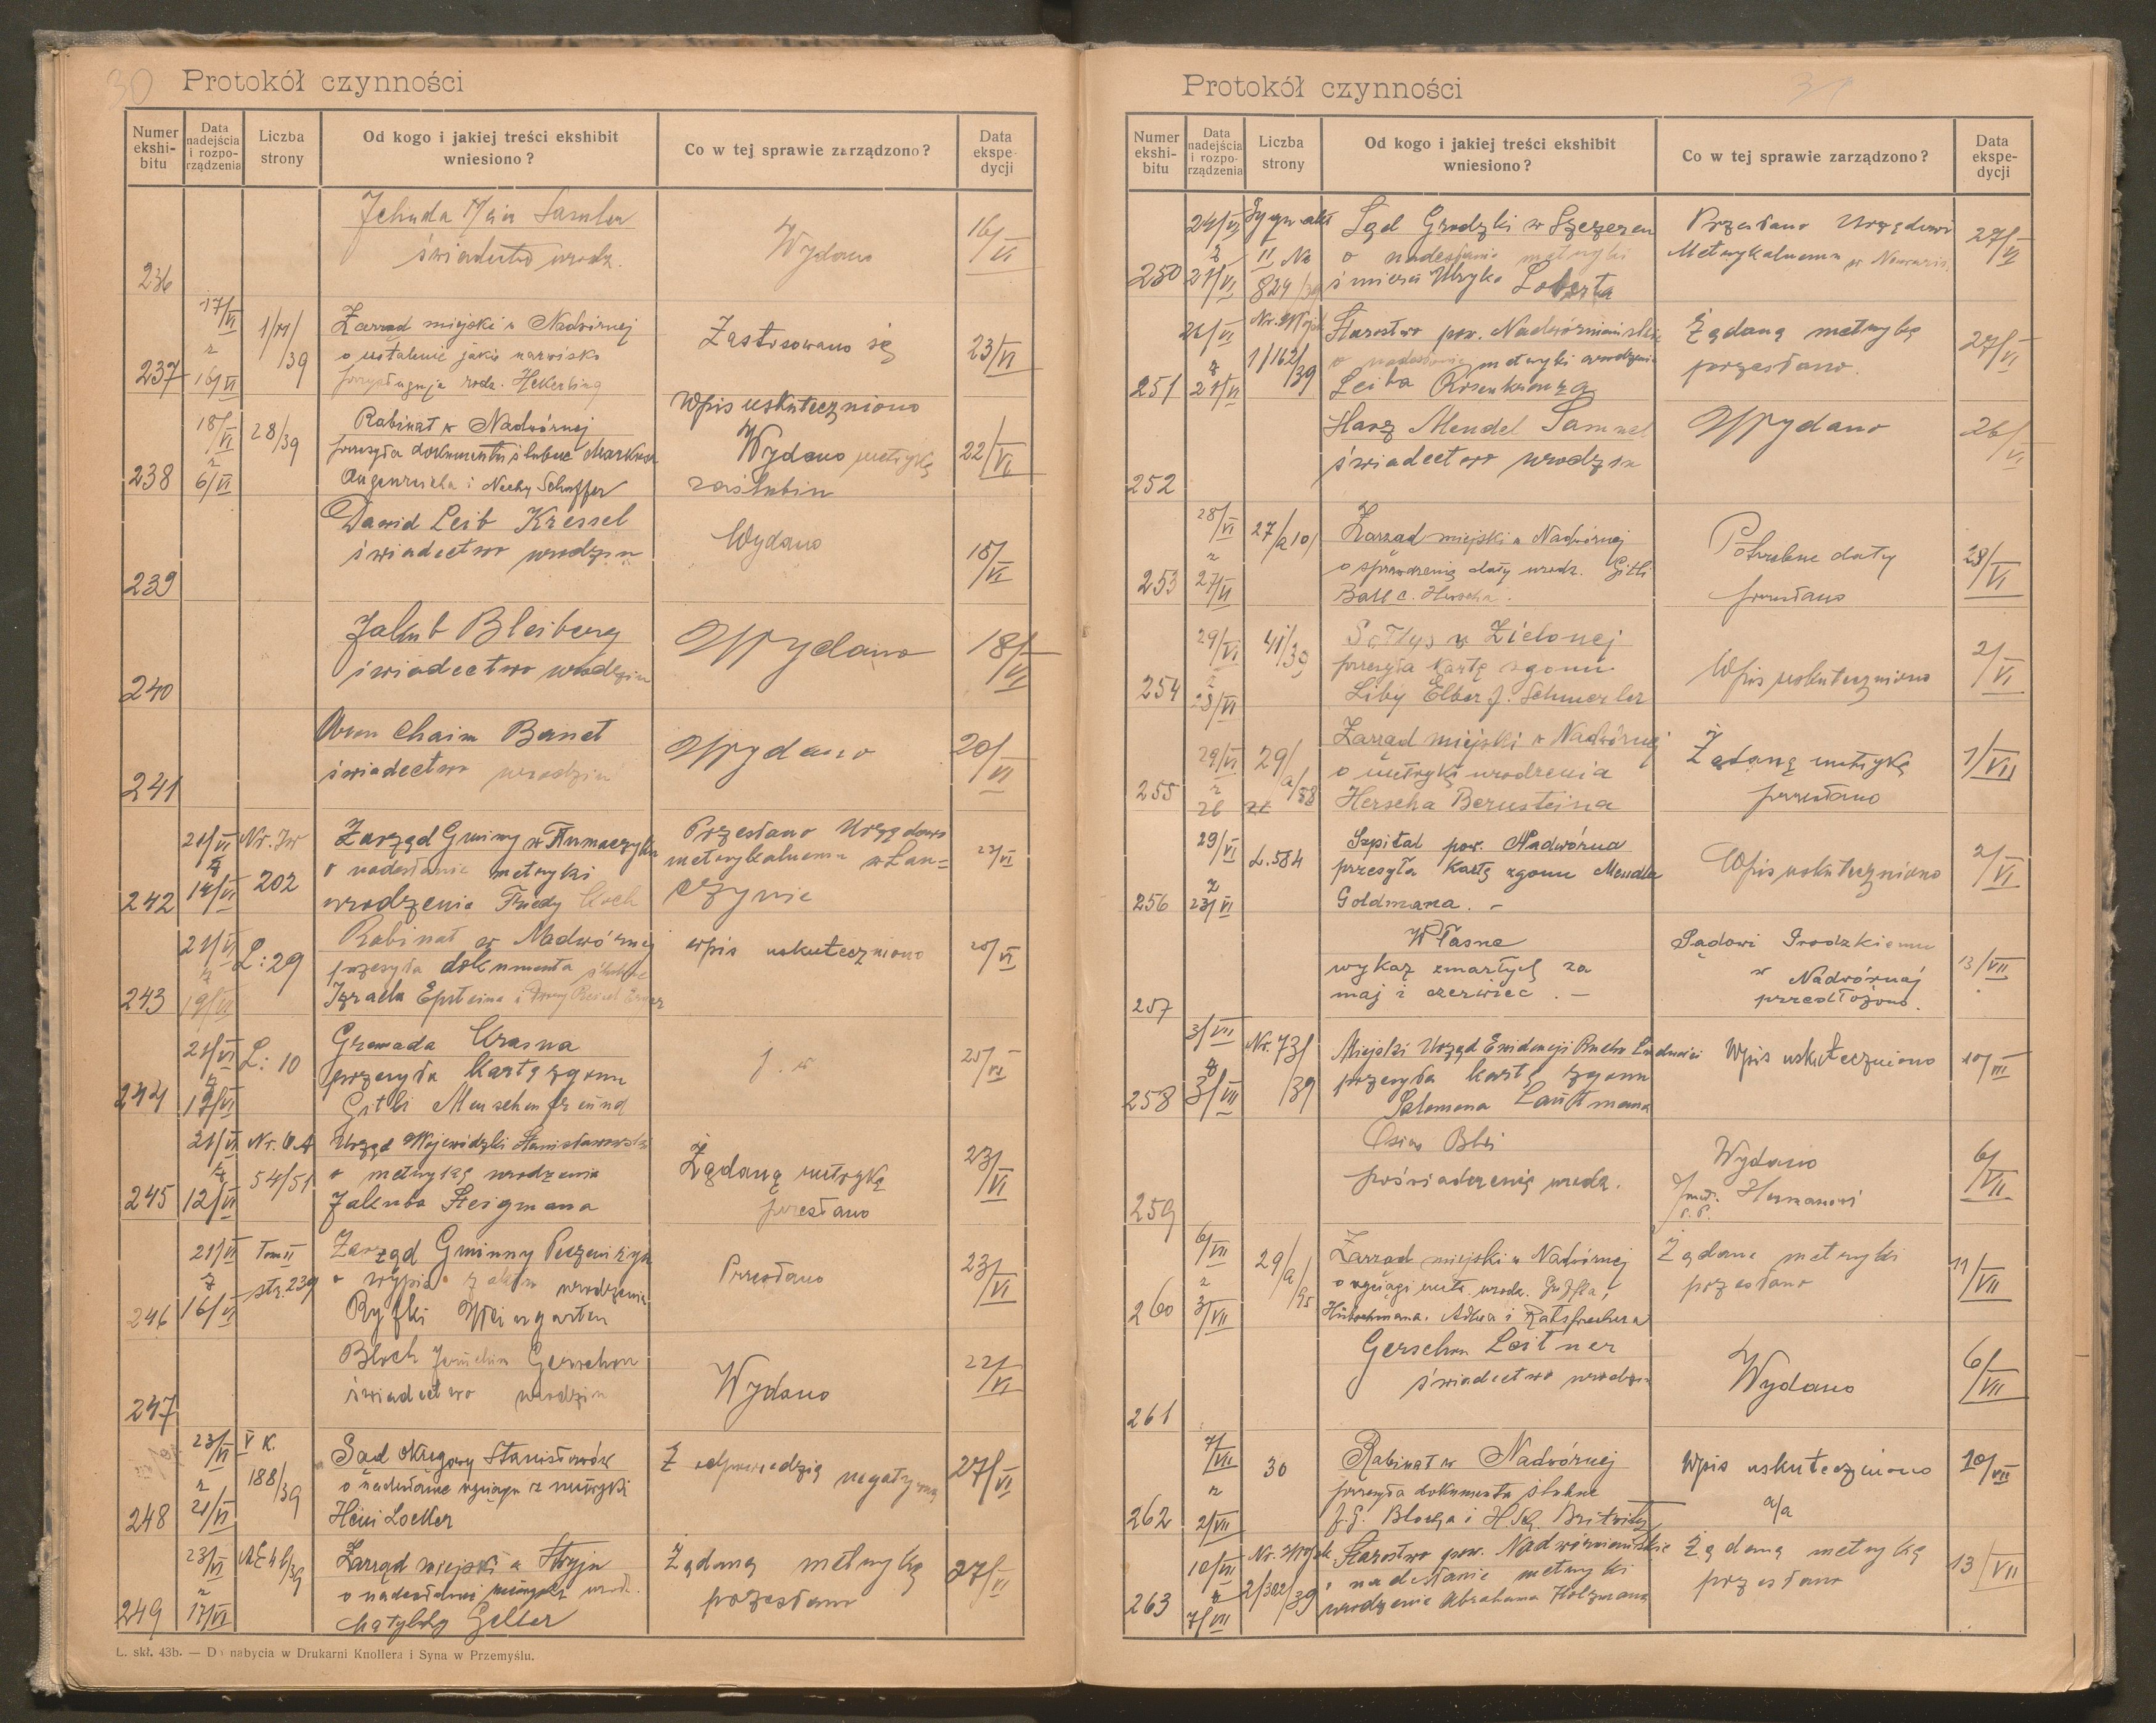 30 Protokół czynności
Numer ekshi-bitu
Data nadejścia i rozpo-rządzenia
Liczba strony
Od kogo i jakiej treści ekshibit wniesiono?
Co w tej sprawie zarządzono?
Data ekspe-dycji
236 Jehuda Samler Wydano 16/VI
świadectwo urodz.
237 17/VI z 16/VI 1/M/39 Zarząd miejski w Nadwórnej Zastosowano się 23/VI
o ustalenie jakie nazwisko
przysługuje rodz.
238 18/VI z 6/VI 28/39 Rabinat w Nadwórnej Wpis uskuteczniono 22/VI
przesyła dokumenta ślubne Markusa Wydano metrykę
i Nechy Schaffer zaślubin
239 Dawid Leib Kressel Wydano 18/VI
świadectwo urodzin
240 Jakub Bleiberg Wydano 18/VI
świadectwo urodzin
241 Chaim Banet Wydano 20/VI
świadectwo urodzin
242 21/VI z 14/VI Nr. 202 Zarząd Gminy w Tłumaczyku Przesłano Urzędowi 22/VI
o nadesłanie metryki metrykalnemu w Łan-
urodzenia Friedy Koch czynie
243 21/VI z 19/VI L: 29 Rabinat w Nadwórnej wpis uskuteczniono 25/VI
przesyła dokumenta ślubne
Izraela Epsteina i
244 21/VI z 17/VI L: 10 Gromada Krasna j. w 25/VI
przesyła kartę zgonu
Gitli Menschenfreund
245 21/VI z 12/VI Nr. 54/51 Urząd Wojewódzki Stanisławowski Żądaną metrykę 23/VI
o metrykę urodzenia przesłano
Jakuba Steigmana
246 21/VI z 16/VI Tom II str. 239 Zarząd Gminny Peczeniżyn Przesłano 23/VI
o wypis z aktu urodzenia
Ryfki Weingarten
247 Bloch Gerschon Wydano 22/VI
świadectwo urodzin
248 23/VI z 21/VI V K. 188/39 Sąd okręgowy Stanisławów Z odpowiedzią negatywną 27/VI
o nadesłanie wyciągu z metryki
Heni Locker
249 23/VI z 17/VI Zarząd miejski w Stryju Żądaną metrykę 27/VI
o nadesłanie metryki urodz. przesłano
Matyldy Geller
L. skł. 43b. — Do nabycia w Drukarni Knollera i Syna w Przemyślu.
Protokół czynności 31
Numer ekshi-bitu
Data nadejścia i rozpo-rządzenia
Liczba strony
Od kogo i jakiej treści ekshibit wniesiono?
Co w tej sprawie zarządzono?
Data ekspe-dycji
250 24/VI z 21/VI Sygn. akt II. No 829/39 Sąd Grodzki w Szczercu Przesłano Urzędowi 27/VI
o nadesłanie metryki Metrykalnemu w
251 26/VI z 21/VI 1/162/39 Starostwo pow. Nadwórniańskie Żądaną metrykę 27/VI
o nadesłanie metryki urodzenia przesłano.
Leiba Rosenkranza
252 Harz Mendel Samuel Wydano 26/VI
świadectwo urodzin
253 28/VI z 27/VI Zarząd miejski w Nadwórnej Potrzebne daty 28/VI
o sprawdzenie daty urodz. Gitli przesłano
Ball c. Herscha.
254 29/VI z 28/VI 41/39 Sołtys w Zielonej Wpis uskuteczniono 2/VI
przesyła kartę zgonu
Liby Elber f. Schmerler
255 29/VI z 26 29/a/38 Zarząd miejski w Nadwórnej Żądaną metrykę 1/VII
o metrykę urodzenia przesłano
Herscha Bernsteina
256 29/VI z 23/VI L. 584 Szpital pow. Nadwórna Wpis uskuteczniono 2/VI
przesyła kartę zgonu Mendla
Goldmana. -
257 Własne Sądowi Grodzkiemu 13/VII
wykaz zmarłych za w Nadwórnej
maj i czerwiec. - przedłożono.
258 3/VII z 3/VII Nr. 731/39 Miejski Urząd Ewidencji Ruchu Ludności Wpis uskuteczniono 10/VII
przesyła kartę zgonu
Salomona Lautmana
259 Wydano 6/VII
poświadczenie urodz.
260 6/VII z 3/VII 29/a/95 Zarząd miejski w Nadwórnej Żądane metryki 11/VII
o wyciągi metr. urodz. przesłano
261 Gerschon Leitner Wydano 6/VII
świadectwo urodzin
262 7/VII z 2/VII 30 Rabinat w Nadwórnej Wpis uskuteczniono 10/VII
przesyła dokumenta ślubne a/a
263 10/VII z 7/VII Nr. Wojsk. 2/302/39 Starostwo pow. Nadwórniańskie Żądaną metrykę 13/VII
o nadesłanie metryki przesłano
urodzenia Abrahama Holzmana